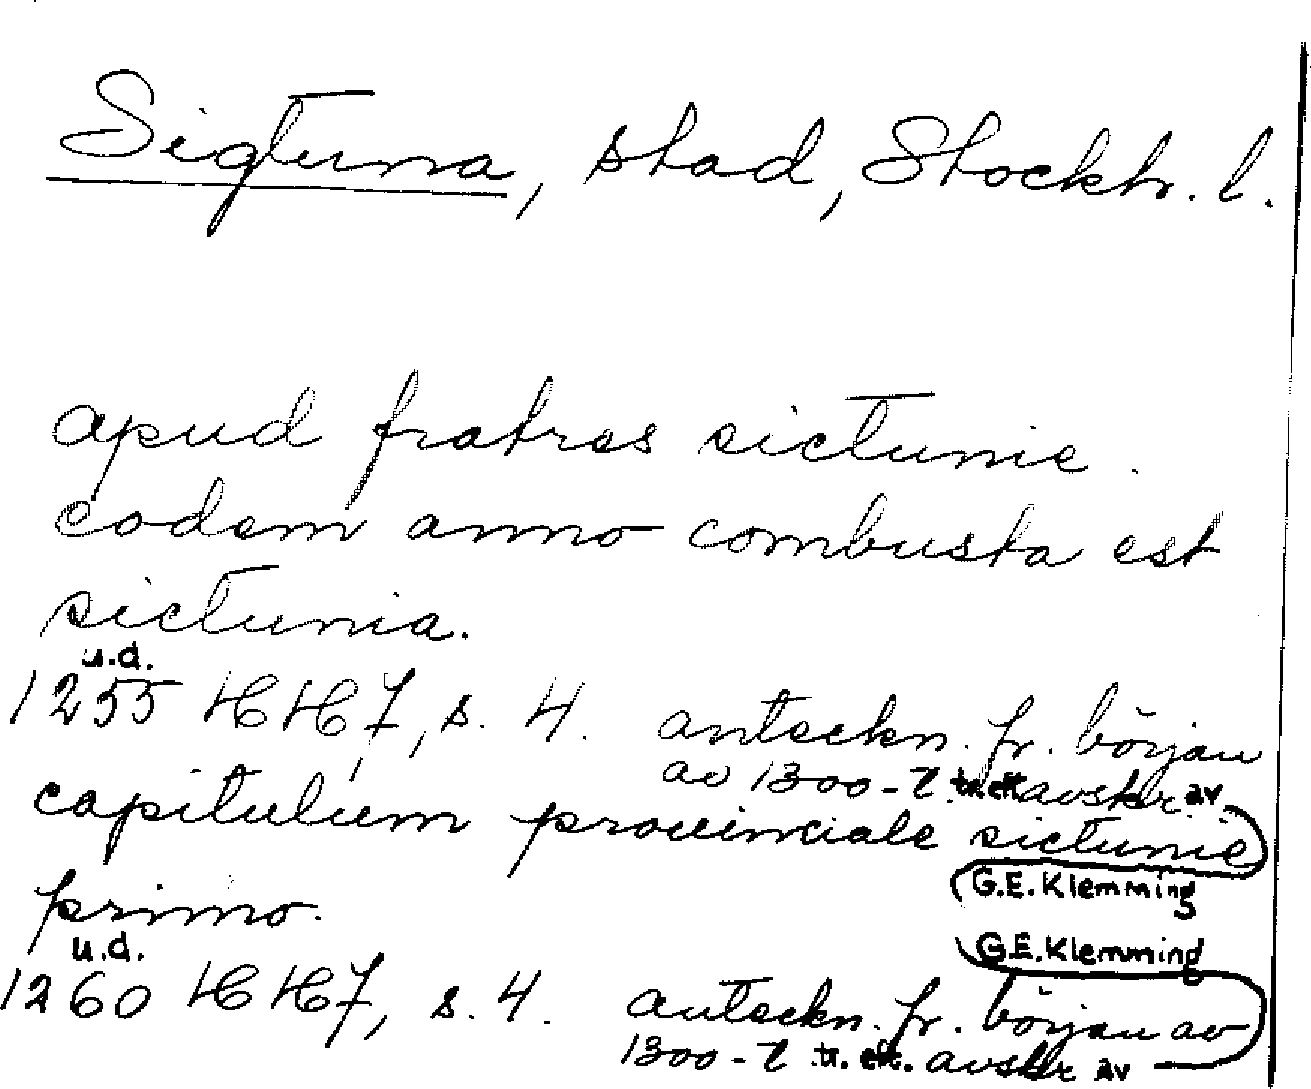 Sigtuna, stad, Stockh. l.
apud fratres sictunie.
eodem anno combusta est
sictunia.
u.d.
1255 HH 7, s. 4. anteckn. fr. början
av 1300-t. tr. eft. avskr av
capitulum prouinciale sictunie
G.E. Klemming
primo.
u.d.
G.E. Klemming
1260 HH 7, s. 4. anteckn. fr. början av
1300-t tr. eft. avskr av